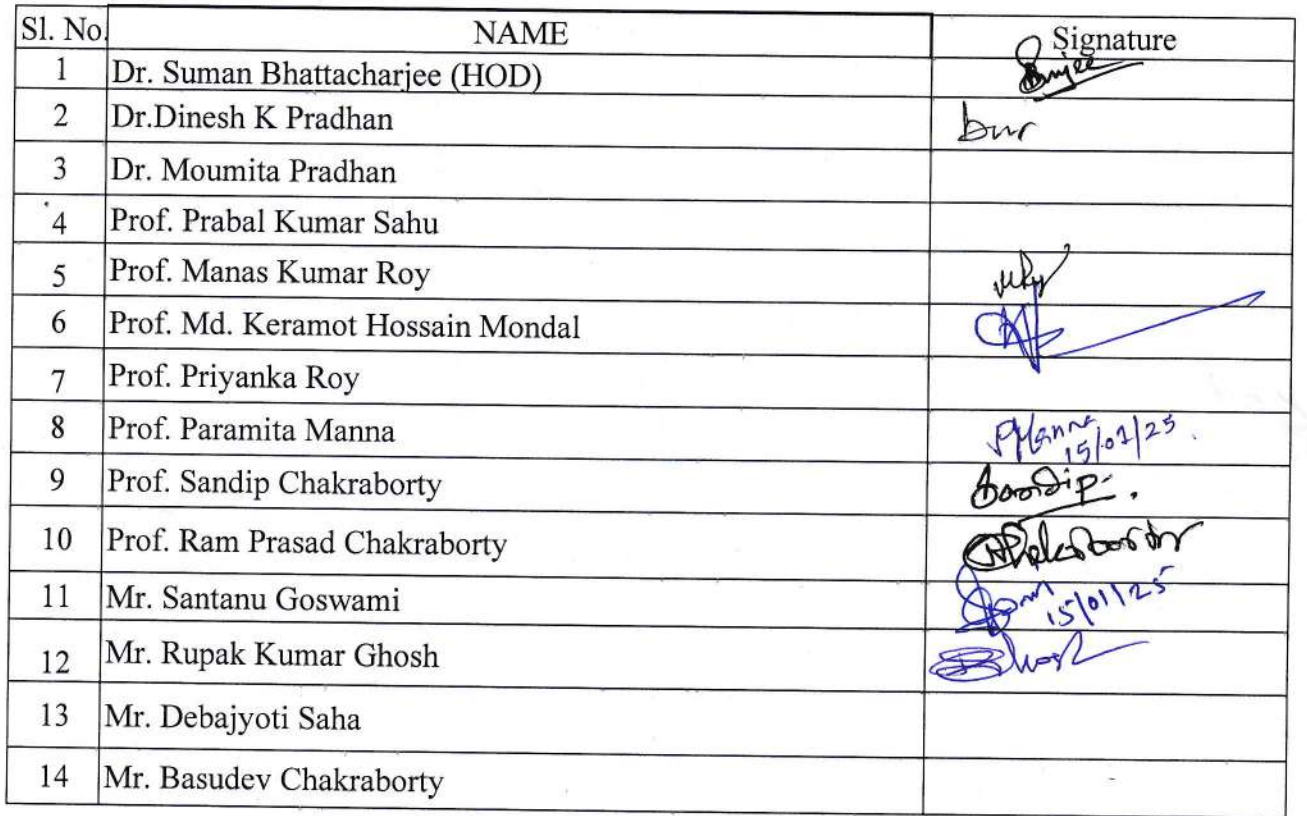 Sl. No. NAME Signature
1 Dr. Suman Bhattacharjee (HOD)
2 Dr.Dinesh K Pradhan
3 Dr. Moumita Pradhan
4 Prof. Prabal Kumar Sahu
5 Prof. Manas Kumar Roy
6 Prof. Md. Keramot Hossain Mondal
7 Prof. Priyanka Roy
8 Prof. Paramita Manna PManna
15/01/25
9 Prof. Sandip Chakraborty Sandip
10 Prof. Ram Prasad Chakraborty
11 Mr. Santanu Goswami 15/01/25
12 Mr. Rupak Kumar Ghosh
13 Mr. Debajyoti Saha
14 Mr. Basudev Chakraborty